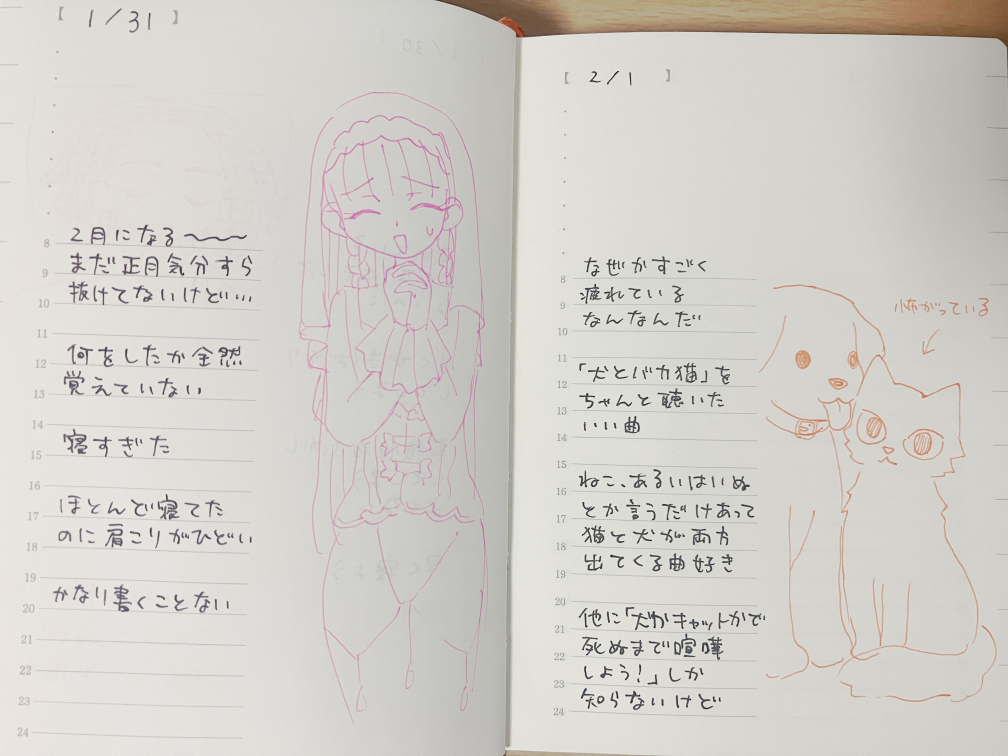 【 1/31 】
2月になる〜〜〜
まだ正月気分すら
抜けてないけど…
何をしたか全然
覚えていない
寝すぎた
ほとんど寝てた
のに肩こりがひどい
かなり書くことない
8
9
10
11
12
13
14
15
16
17
18
19
20
21
22
23
24
【 2/1 】
なぜかすごく
疲れている
なんなんだ
「犬とバカ猫」を
ちゃんと聴いた
いい曲
ねこ、あるいはいぬ
とか言うだけあって
猫と犬が両方
出てくる曲好き
他に「犬かキャットかで
死ぬまで喧嘩
しよう!」しか
知らないけど
怖がっている
8
9
10
11
12
13
14
15
16
17
18
19
20
21
22
23
24